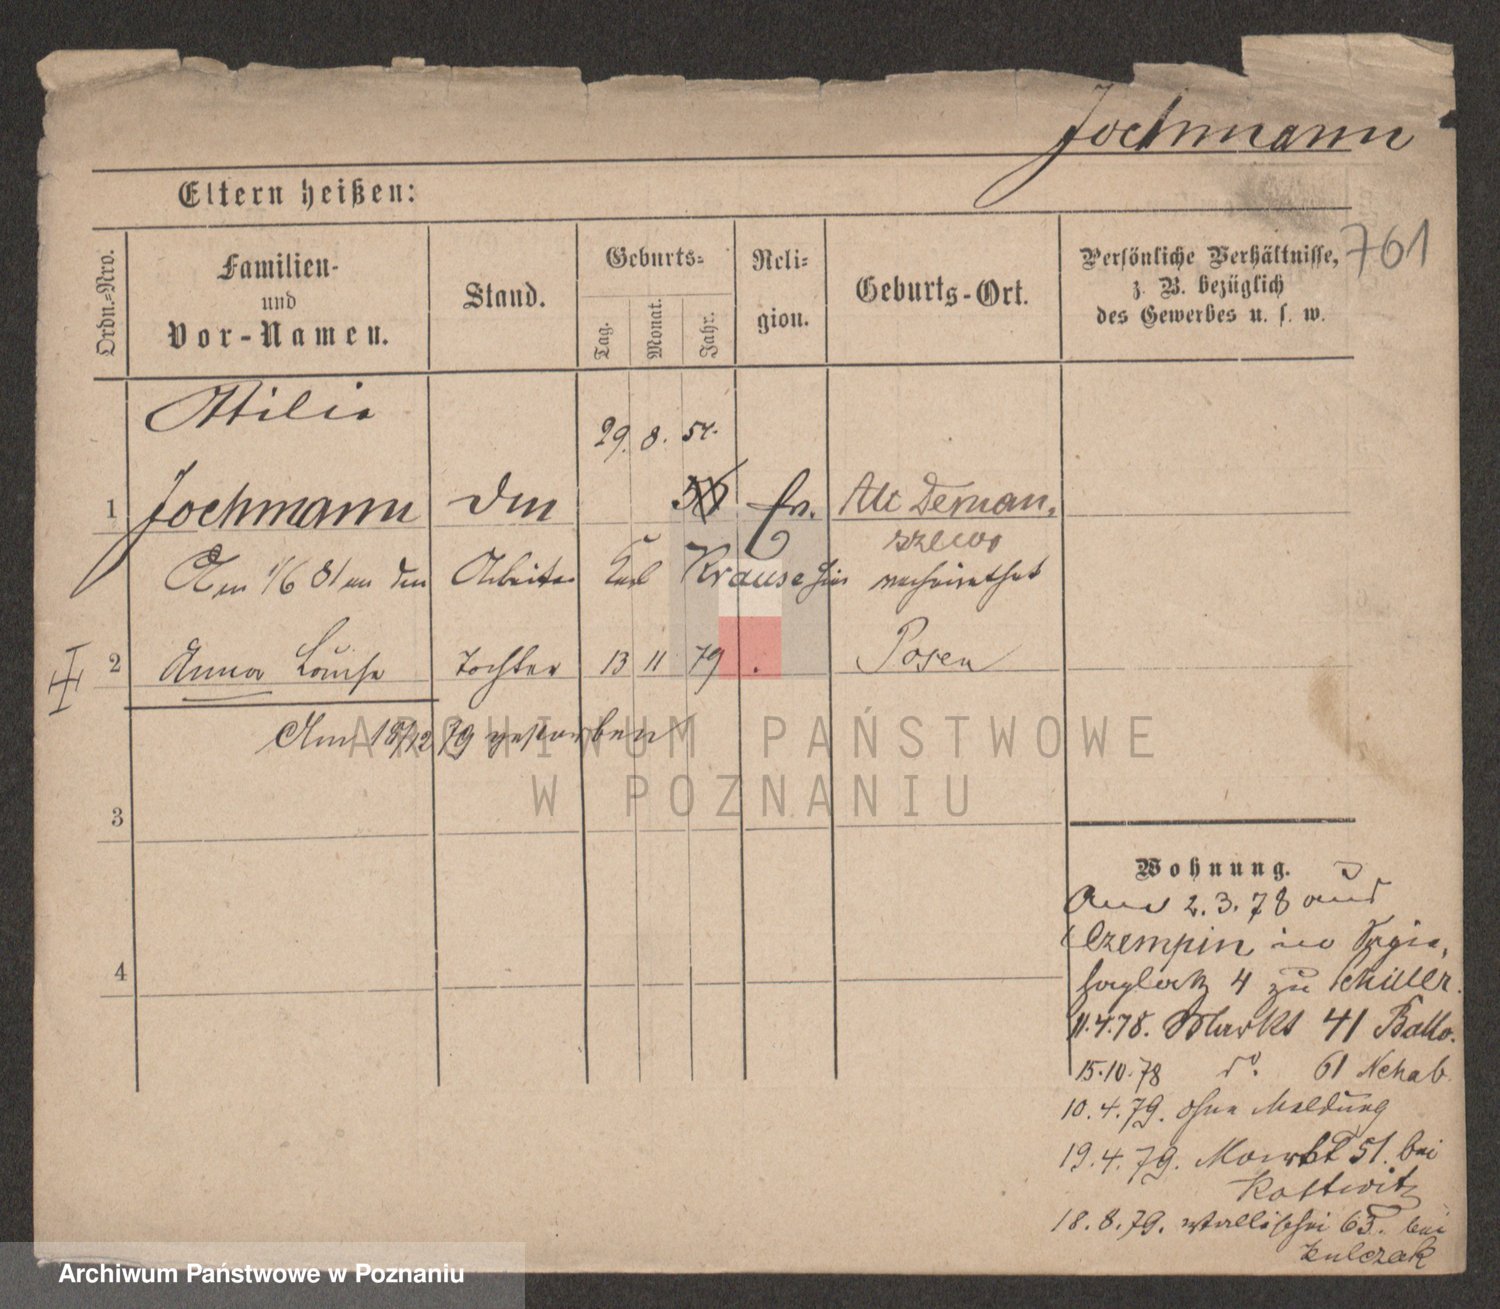 Jochmann
Eltern heißen:
761
Ordn.=Nro.
Familien-
und
Vor-Namen.
Stand.
Geburts-
Tag.
Monat.
Jahr.
Reli-
gion.
Geburts-Ort.
Persönliche Verhältnisse,
z. B. bezüglich
des Gewerbes u. s. w.
Ottilie
29. 8. 54.
1 Jochmann Ev. Alt Deman-
szewo
Am 1/6 81 an den Arbeiter Karl Krause hier verheirathet
2 Anna Louise Tochter 13 11 79 Posen
Am 18/12 79 gestorben
3
4
Wohnung.
2. 3. 78 aus
Czempin
4 zu Schiller.
11.4.78. Markt 41
15.10.78 do. 61 Nehab
10.4.79. ohne Meldung
19.4.79. Markt 51. bei
Kostwitz
18.8.79. Wallischei 63. bei
Kulczak
ARCHIWUM PAŃSTWOWE
W POZNANIU
Archiwum Państwowe w Poznaniu